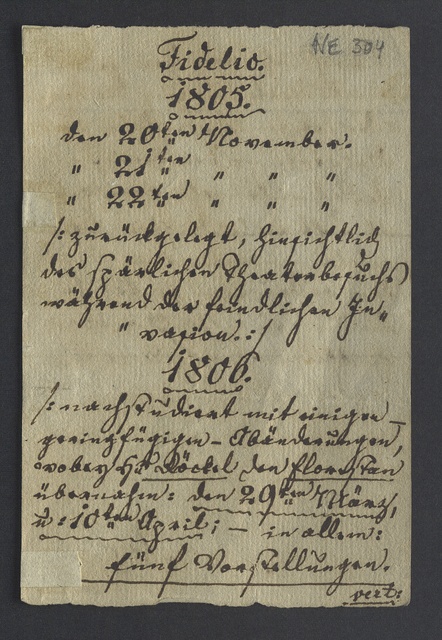 NE 304
Fidelio.
1805.
den 20ten November.
" 21ten " " "
" 22ten " " "
/: zurückgelegt, hinsichtlich
des spärlichen Theaterbesuchs
während der feindlichen In„
" vasion. :/
1806.
/: nachstudiert mit einigen –
geringfügigen – Abänderungen,
wobey Hr Röckel den Florestan
übernahm: den 29ten März,
u: 10ten April; – in allem:
fünf Vorstellungen.
vert: